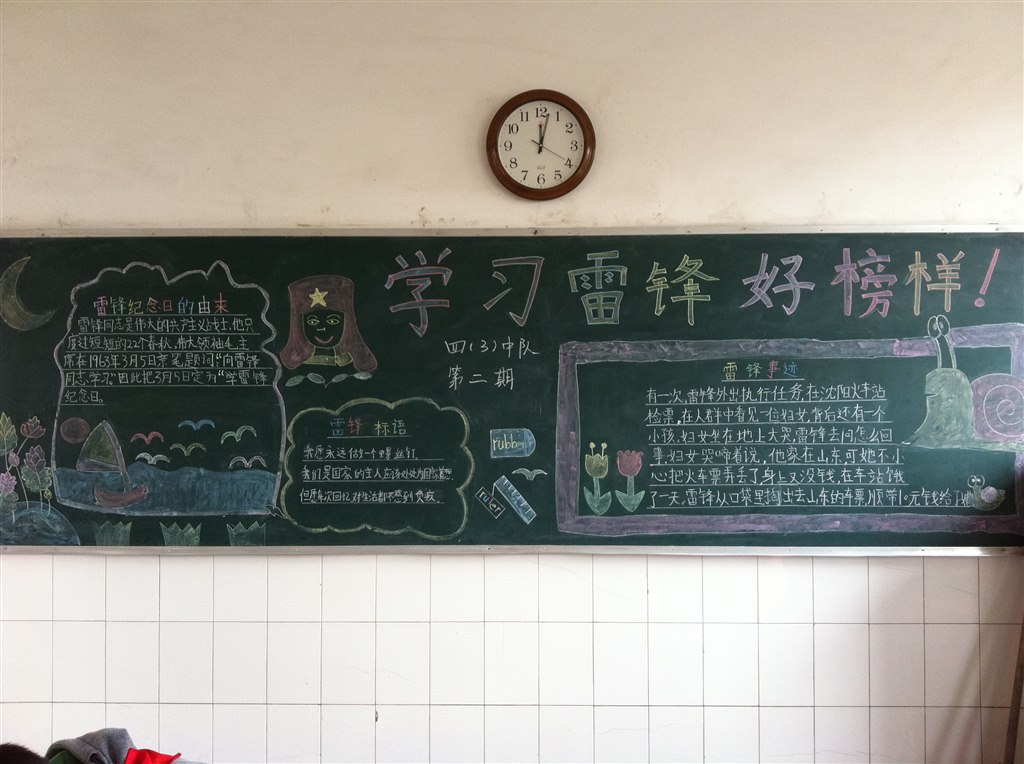 12
1
2
3
4
5
6
7
8
9
10
11
学习雷锋好榜样!
四(3)中队
第二期
雷锋纪念日的由来
雷锋同志是伟大的共产主义战士,他只
度过短短的22个春秋,伟大领袖毛主
席在1963年3月5日亲笔题词:"向雷锋
同志学习"因此把3月5日定为"学雷锋
纪念日。
雷锋标语
我愿永远做一个螺丝钉.
我们是国家的主人应该处处为国家着想.
但愿每次回忆,对生活都不感到负疚
rubber
ruler
雷锋事迹
有一次,雷锋外出执行任务,在沈阳火车站
检票,在人群中看见一位妇女,背后还有一个
小孩,妇女坐在地上大哭,雷锋去问怎么回
事,妇女哭啼着说,他家在山东可她不小
心把火车票弄丢了身上又没钱,在车站饿
了一天,雷锋从口袋里掏出去山东的车票顺带10元钱给了她